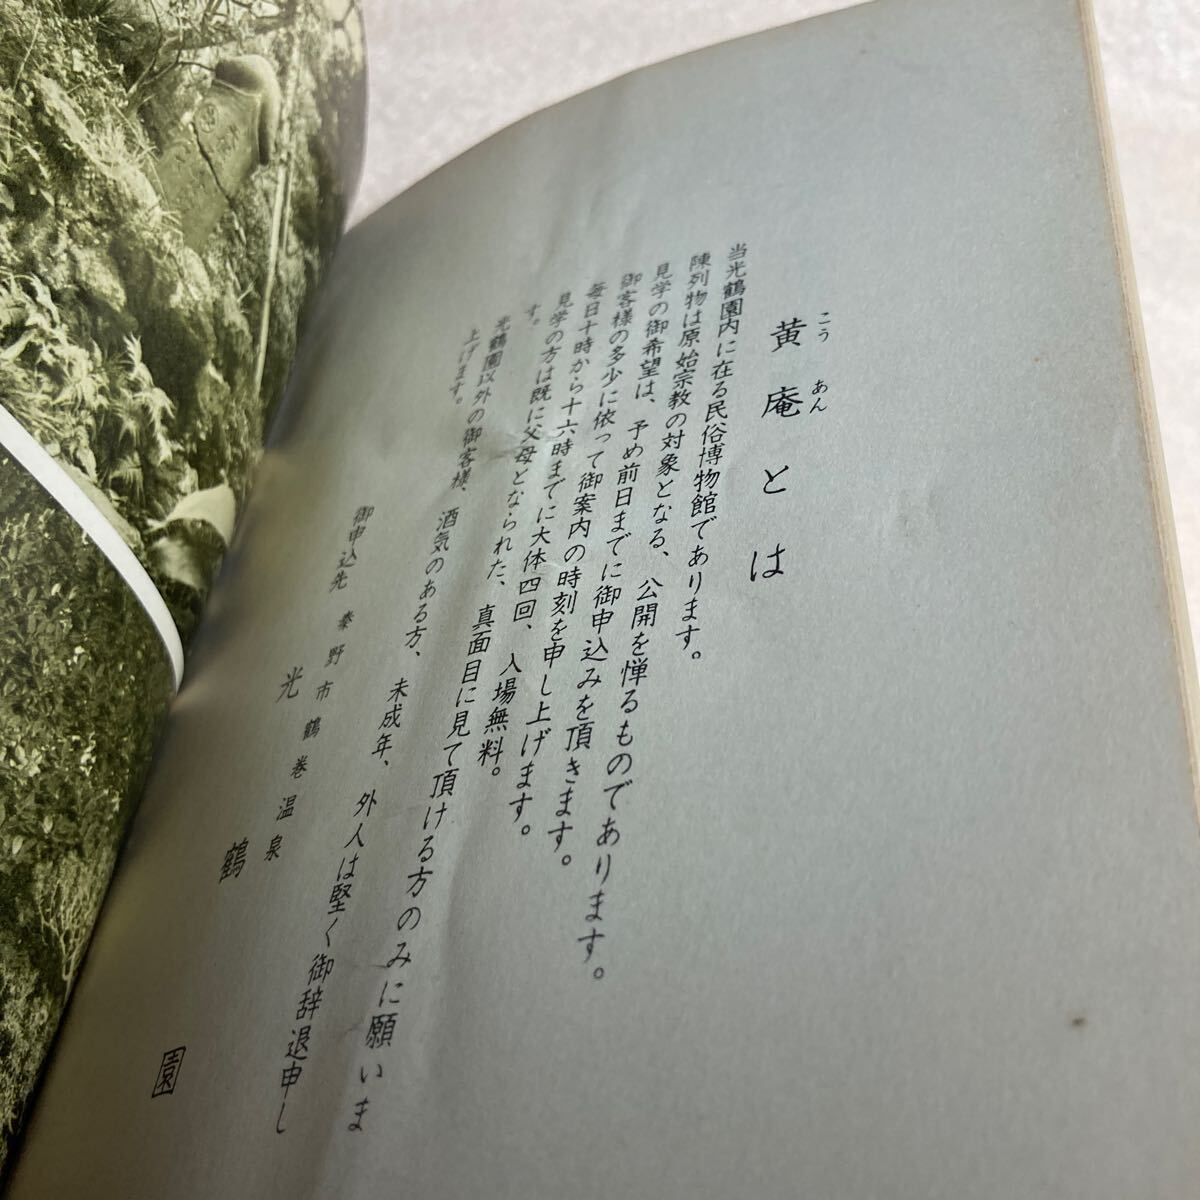 黄庵とは
こうあん
当光鶴園内に在る民俗博物館であります。
陳列物は原始宗教の対象となる、公開を惮るものであります。
見学の御希望は、予め前日までに御申込みを頂きます。
御客様の多少に依って御案内の時刻を申し上げます。
毎日十時から十六時までに大体四回、入場無料。
見学の方は既に父母となられた、真面目に見て頂ける方のみに願いま
す。
光鶴園以外の御客様、酒気のある方、未成年、外人は堅く御辞退申し
上げます。
御申込先 秦野市鶴巻温泉
光鶴園